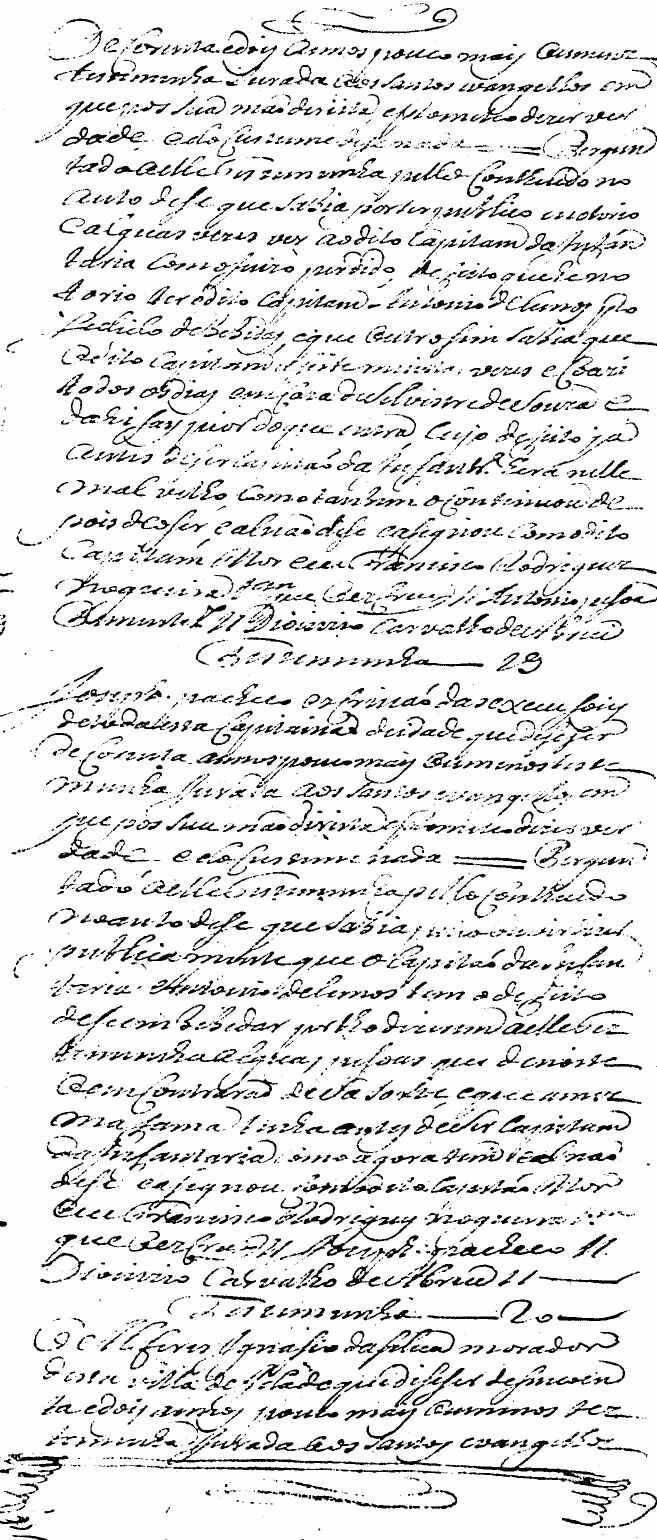 De Corenta edois Annos pouco mais Oumenos
testemunha Jurada aos santos evangelhos em
que pos sua mão direita, e prometeo dizer ver
dade e do Custume dise nada == Pergun
tado a elle testemunha pello Contheudo no
auto dise que sabia por ser publico enotorio
e algũas vezes ver ao dito Capitam da Infan
taria Como perdido, de que he no
torio ser o dito Capitam Antonio de Lemos
de bebidas, e que outro sim sabia que
o dito Capitam vezes e Coazi
todos os dias em Caza de Silvestre de Souza e
dahi say pior do que entra Cujo defeito ja
antes de ser Capitão da Infantr.ª hera nelle
mal velho, Como tambem o Continuou de
pois de o ser, e al não dise e asignou Com o dito
Capitam Mor e eu Francisco Rodrigues
Nogueira que o escrevy // Antonio
Pimentel // Dionizio Carvalho de Abreu
Testemunha — 19
Joseph pacheco escrivão das execusois
de toda esta Capitania de idade que dise ser
de Corenta annos pouco mais Oumenos teste
munha Jurada aos santos evangelhos em
que pos sua mão direita e prometeo dizer ver
dade e do Custume nada == Pergun
tado a elle testemunha pello Contheudo
no auto dise que sabia, pello ouvir dizer
publicamente que o Capitão da Infan
taria Antonio de Lemos tem o defeito
de se embebedar por lho dizerem a elle tes
temunha algũas pesoas que de noite
o emContrarão desta sorte, e que a mes
ma fama tinha antes de ser Capitam
da Infantaria Como agora tem e al não
dise e asignou Com o dito Capitão Mor
e eu Francisco Rodrigues Nogueira
que o escrevy // Joseph pacheco //
Dionizio Carvalho de Abreu //
Testemunha — 20
O Alferes Ignasio da silva morador
desta villa de idade que dise ser de sincoen
ta e dois annos pouco mais Oumenos tes
temunha Jurada aos santos evangelhos